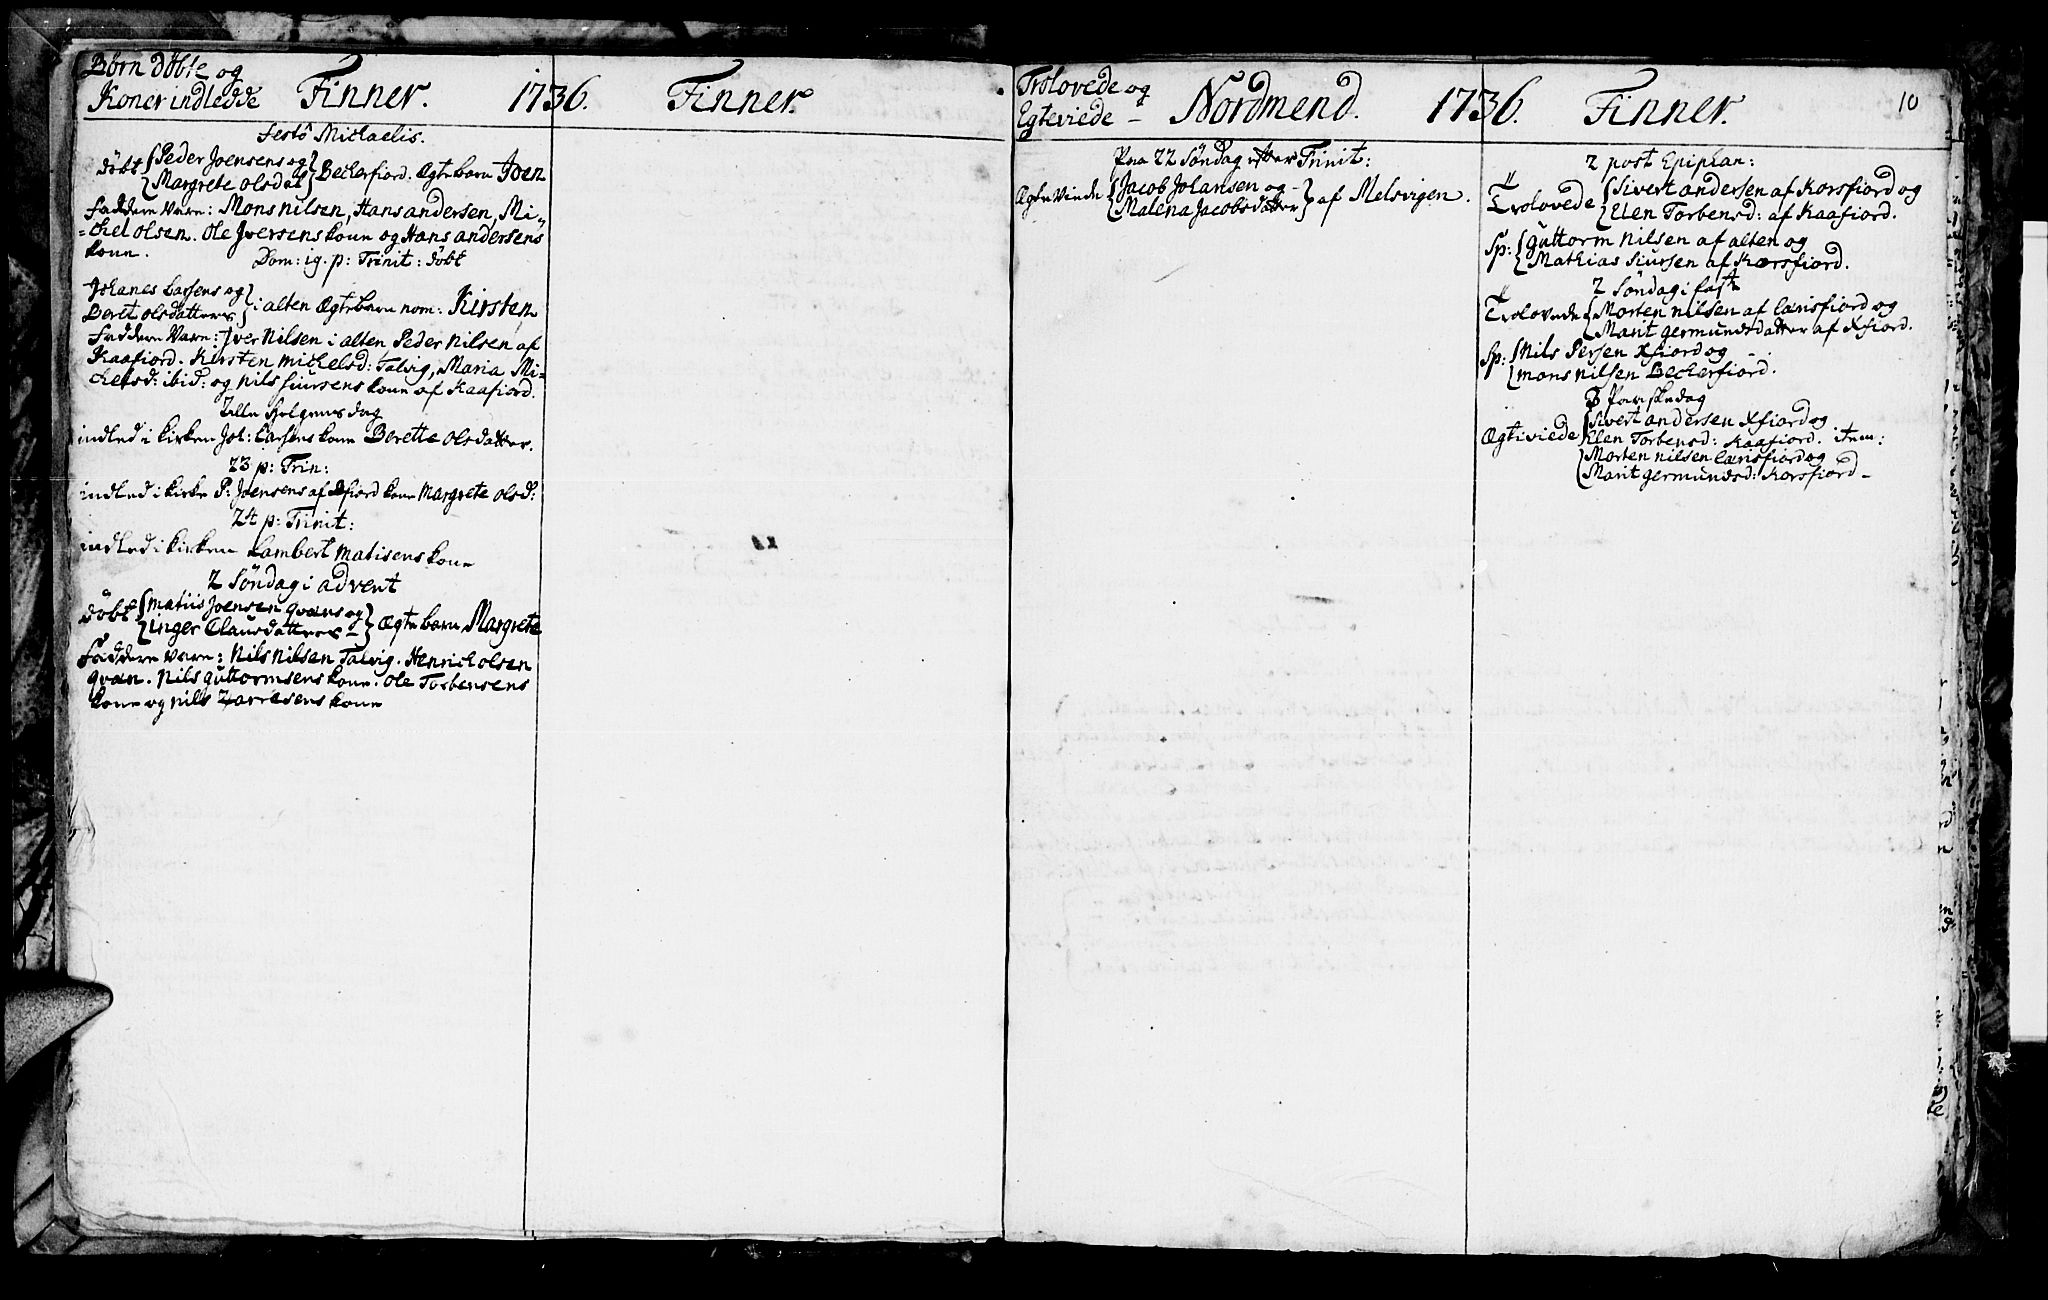 Børn døbte og
Koner indledde Finner. 1736. Finner.
Festo Michaelis.
døbt Peder Joensens og
Margrete olsdat Beckerfiord. Ægte barn Joen
Faddere Vare: Mons nilsen, Hans andersen, Mi-
chel olsen. Ole Jversens kone og Hans andersens
kone.
Dom: 19. p: Trinit: døbt
Johanes Larsens og
Beret olsdatters i alten Ægte barn nom: Kirsten
Faddere Vare: Jver Nilsen i alten Peder Nilsen af
Kaafiord. Kirsten Michelsd: Talvig, Maria Mi-
chelsd: ibid: og nils siursens kone af Kaafiord.
Alle Helgenes dag
indled i kirken Joh: Larsens kone Berette olsdatter.
23 p: Trin:
indled i kirke P: Joensens af fiord kone Margrete olsd:
24 p: Trinit:
indled i kirken Lambert Matisens kone
2 Søndag i advent
døbt Matiis Joensen qvæns og
inger Clausdatters Ægte barn Margrete
Faddere Vare: Nils Nilsen Talvig. Henrich olsen
qvæn. Nils guttormsens kone. ole Torbensens
kone og nils Zarresens kone
Trolovede og
Egteviede – Nordmend. 1736. Finner. 10
Paa 22 Søndag efter Trinit:
Ægte Viede Jacob Johansen og
Malena Jacobsdatter af Melsvigen.
2 post Epiphan:
Trolovede Sivert andersen af Korsfiord og
Elen Torbensd: af Kaafiord.
Sp: Guttorm Nilsen af alten og
Mathias siursen af Korsfiord.
2 Søndag i fast
Trolovede Morten nilsen af Lærisfiord og
Marit germundsdatter af Xfiord.
Sp: Nils Persen Xfiord og
mons nilsen Beckerfiord.
3 Paaskedag
Ægteviede Sivert andersen Xfiord og
Elen Torbensd: Kaafiord. item:
Morten nilsen Lærisfiord og
Marit germundsd: Korsfiord –